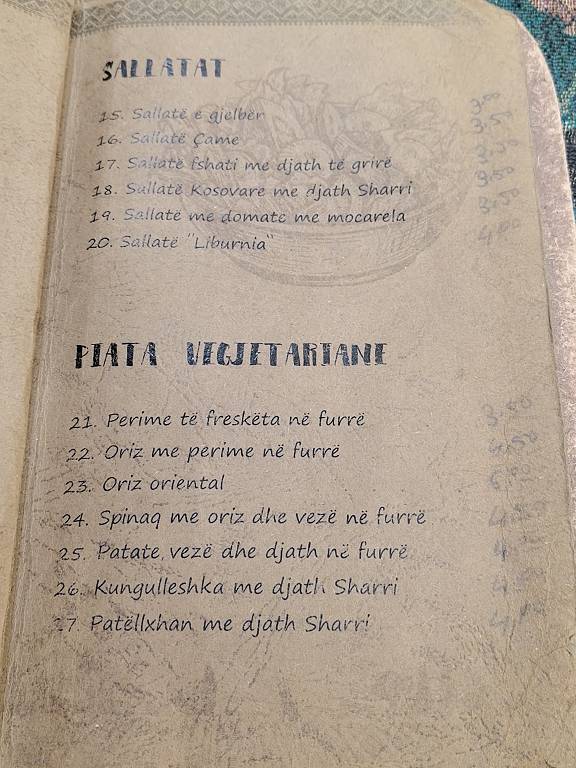 SALLATAT
15. Sallatë e gjelbër 3.00
16. Sallatë Çame 3.50
17. Sallatë fshati me djath të grirë 3.50
18. Sallatë Kosovare me djath Sharri 3.50
19. Sallatë me domate me mocarela 3.50
20. Sallatë "Liburnia" 4.00
PIATA VEGJETARIANE
21. Perime të freskëta në furrë 3.50
22. Oriz me perime në furrë
23. Oriz oriental
24. Spinaq me oriz dhe vezë në furrë
25. Patate, vezë dhe djath në furrë
26. Kungulleshka me djath Sharri
27 Patëllxhan me djath Sharri